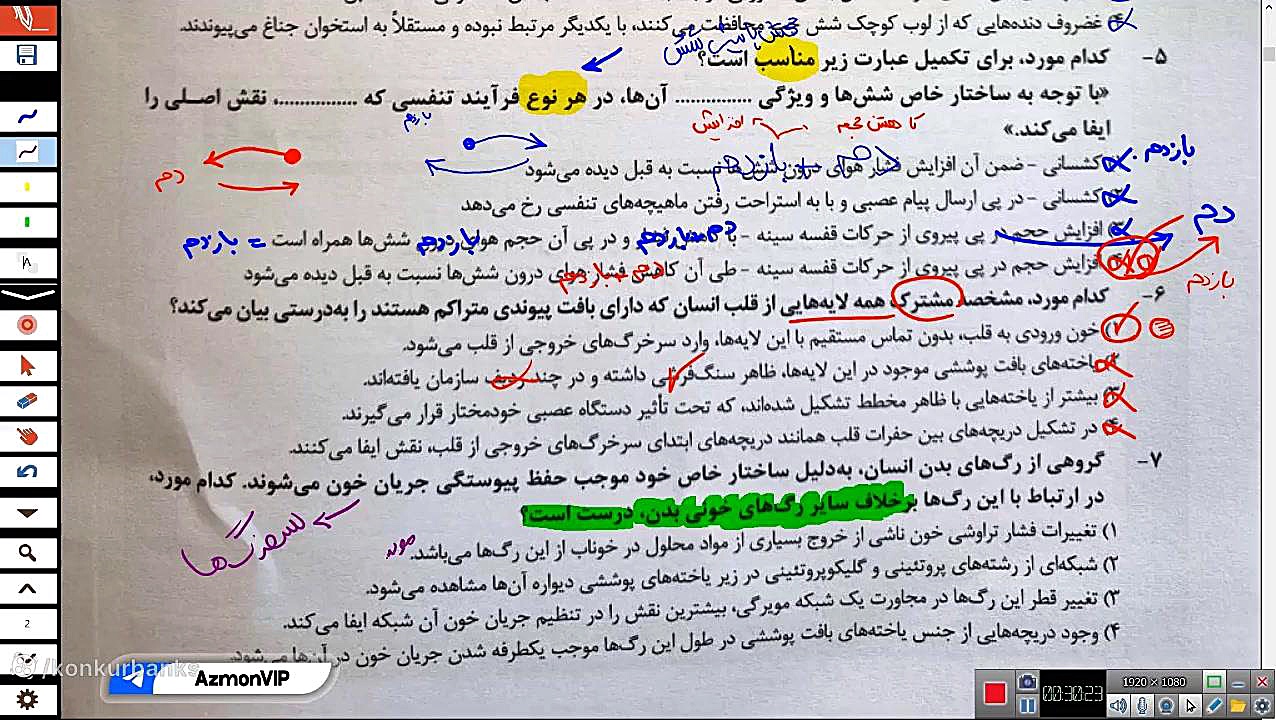 غضروف دنده‌هایی که از لوب کوچک شش محافظت می‌کنند، با یکدیگر مرتبط نبوده و مستقلاً به استخوان جناغ می‌پیوندند.
۵- کدام مورد، برای تکمیل عبارت زیر مناسب است؟
«با توجه به ساختار خاص شش‌ها و ویژگی .............. آن‌ها، در هر نوع فرآیند تنفسی که ................، نقش اصلی را
بازدم
افزایش
کاهش حجم
ایفا می‌کند.»
کشسانی - ضمن آن افزایش فشار هوای درون شش‌ها نسبت به قبل دیده می‌شود
بازدم
دم
کشسانی - در پی ارسال پیام عصبی و با به استراحت رفتن ماهیچه‌های تنفسی رخ می‌دهد
افزایش حجم در پی پیروی از حرکات قفسه سینه - با و در پی آن حجم شش‌ها همراه است
دم
بازدم
= بازدم
افزایش حجم در پی پیروی از حرکات قفسه سینه - طی آن کاهش فشار هوای درون شش‌ها نسبت به قبل دیده می‌شود
بازدم
۶- کدام مورد، مشخصه مشترک همه لایه‌هایی از قلب انسان که دارای بافت پیوندی متراکم هستند را به‌درستی بیان می‌کند؟
۱) خون ورودی به قلب، بدون تماس مستقیم با این لایه‌ها، وارد سرخرگ‌های خروجی از قلب می‌شود.
یاخته‌های بافت پوششی موجود در این لایه‌ها، ظاهر سنگ‌فرشی داشته و در چند ردیف سازمان یافته‌اند.
بیشتر از یاخته‌هایی با ظاهر مخطط تشکیل شده‌اند، که تحت تأثیر دستگاه عصبی خودمختار قرار می‌گیرند.
در تشکیل دریچه‌های بین حفرات قلب همانند دریچه‌های ابتدای سرخرگ‌های خروجی از قلب، نقش ایفا می‌کنند.
۷- گروهی از رگ‌های بدن انسان، به‌دلیل ساختار خاص خود موجب حفظ پیوستگی جریان خون می‌شوند. کدام مورد،
در ارتباط با این رگ‌ها برخلاف سایر رگ‌های خونی بدن، درست است؟
سرخرگ‌ها
۱) تغییرات فشار تراوشی خون ناشی از خروج بسیاری از مواد محلول در خوناب از این رگ‌ها می‌باشد.
۲) شبکه‌ای از رشته‌های پروتئینی و گلیکوپروتئینی در زیر یاخته‌های پوششی دیواره آن‌ها مشاهده می‌شود.
۳) تغییر قطر این رگ‌ها در مجاورت یک شبکه مویرگی، بیشترین نقش را در تنظیم جریان خون آن شبکه ایفا می‌کند.
۴) وجود دریچه‌هایی از جنس یاخته‌های بافت پوششی در طول این رگ‌ها موجب یکطرفه شدن جریان خون در آن‌ها می‌شود.
/konkurbanks
AzmonVIP
2
00:30:23
1920 × 1080